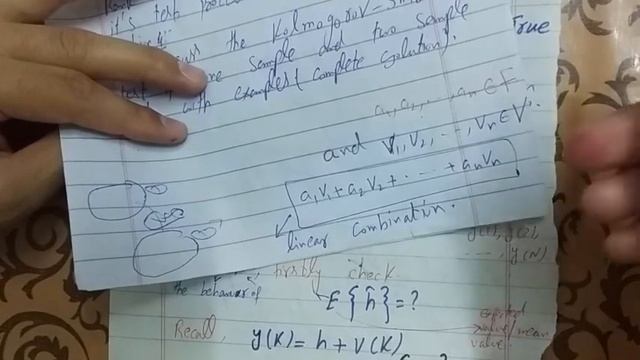 it's test
the Kolmogorov-
sample and two sample
with examples (complete solution).
True
a₁, a₂, ... aₙ ∈ F
and V₁, V₂, ..., Vₙ ∈ V
a₁v₁ + a₂v₂ + ... + aₙvₙ
linear combination.
y(1), y(2),
..., y(N)
firstly check
the behavior of
E{ĥ} = ?
Expected
value/mean
value
Recall, y(K) = h + V(K)